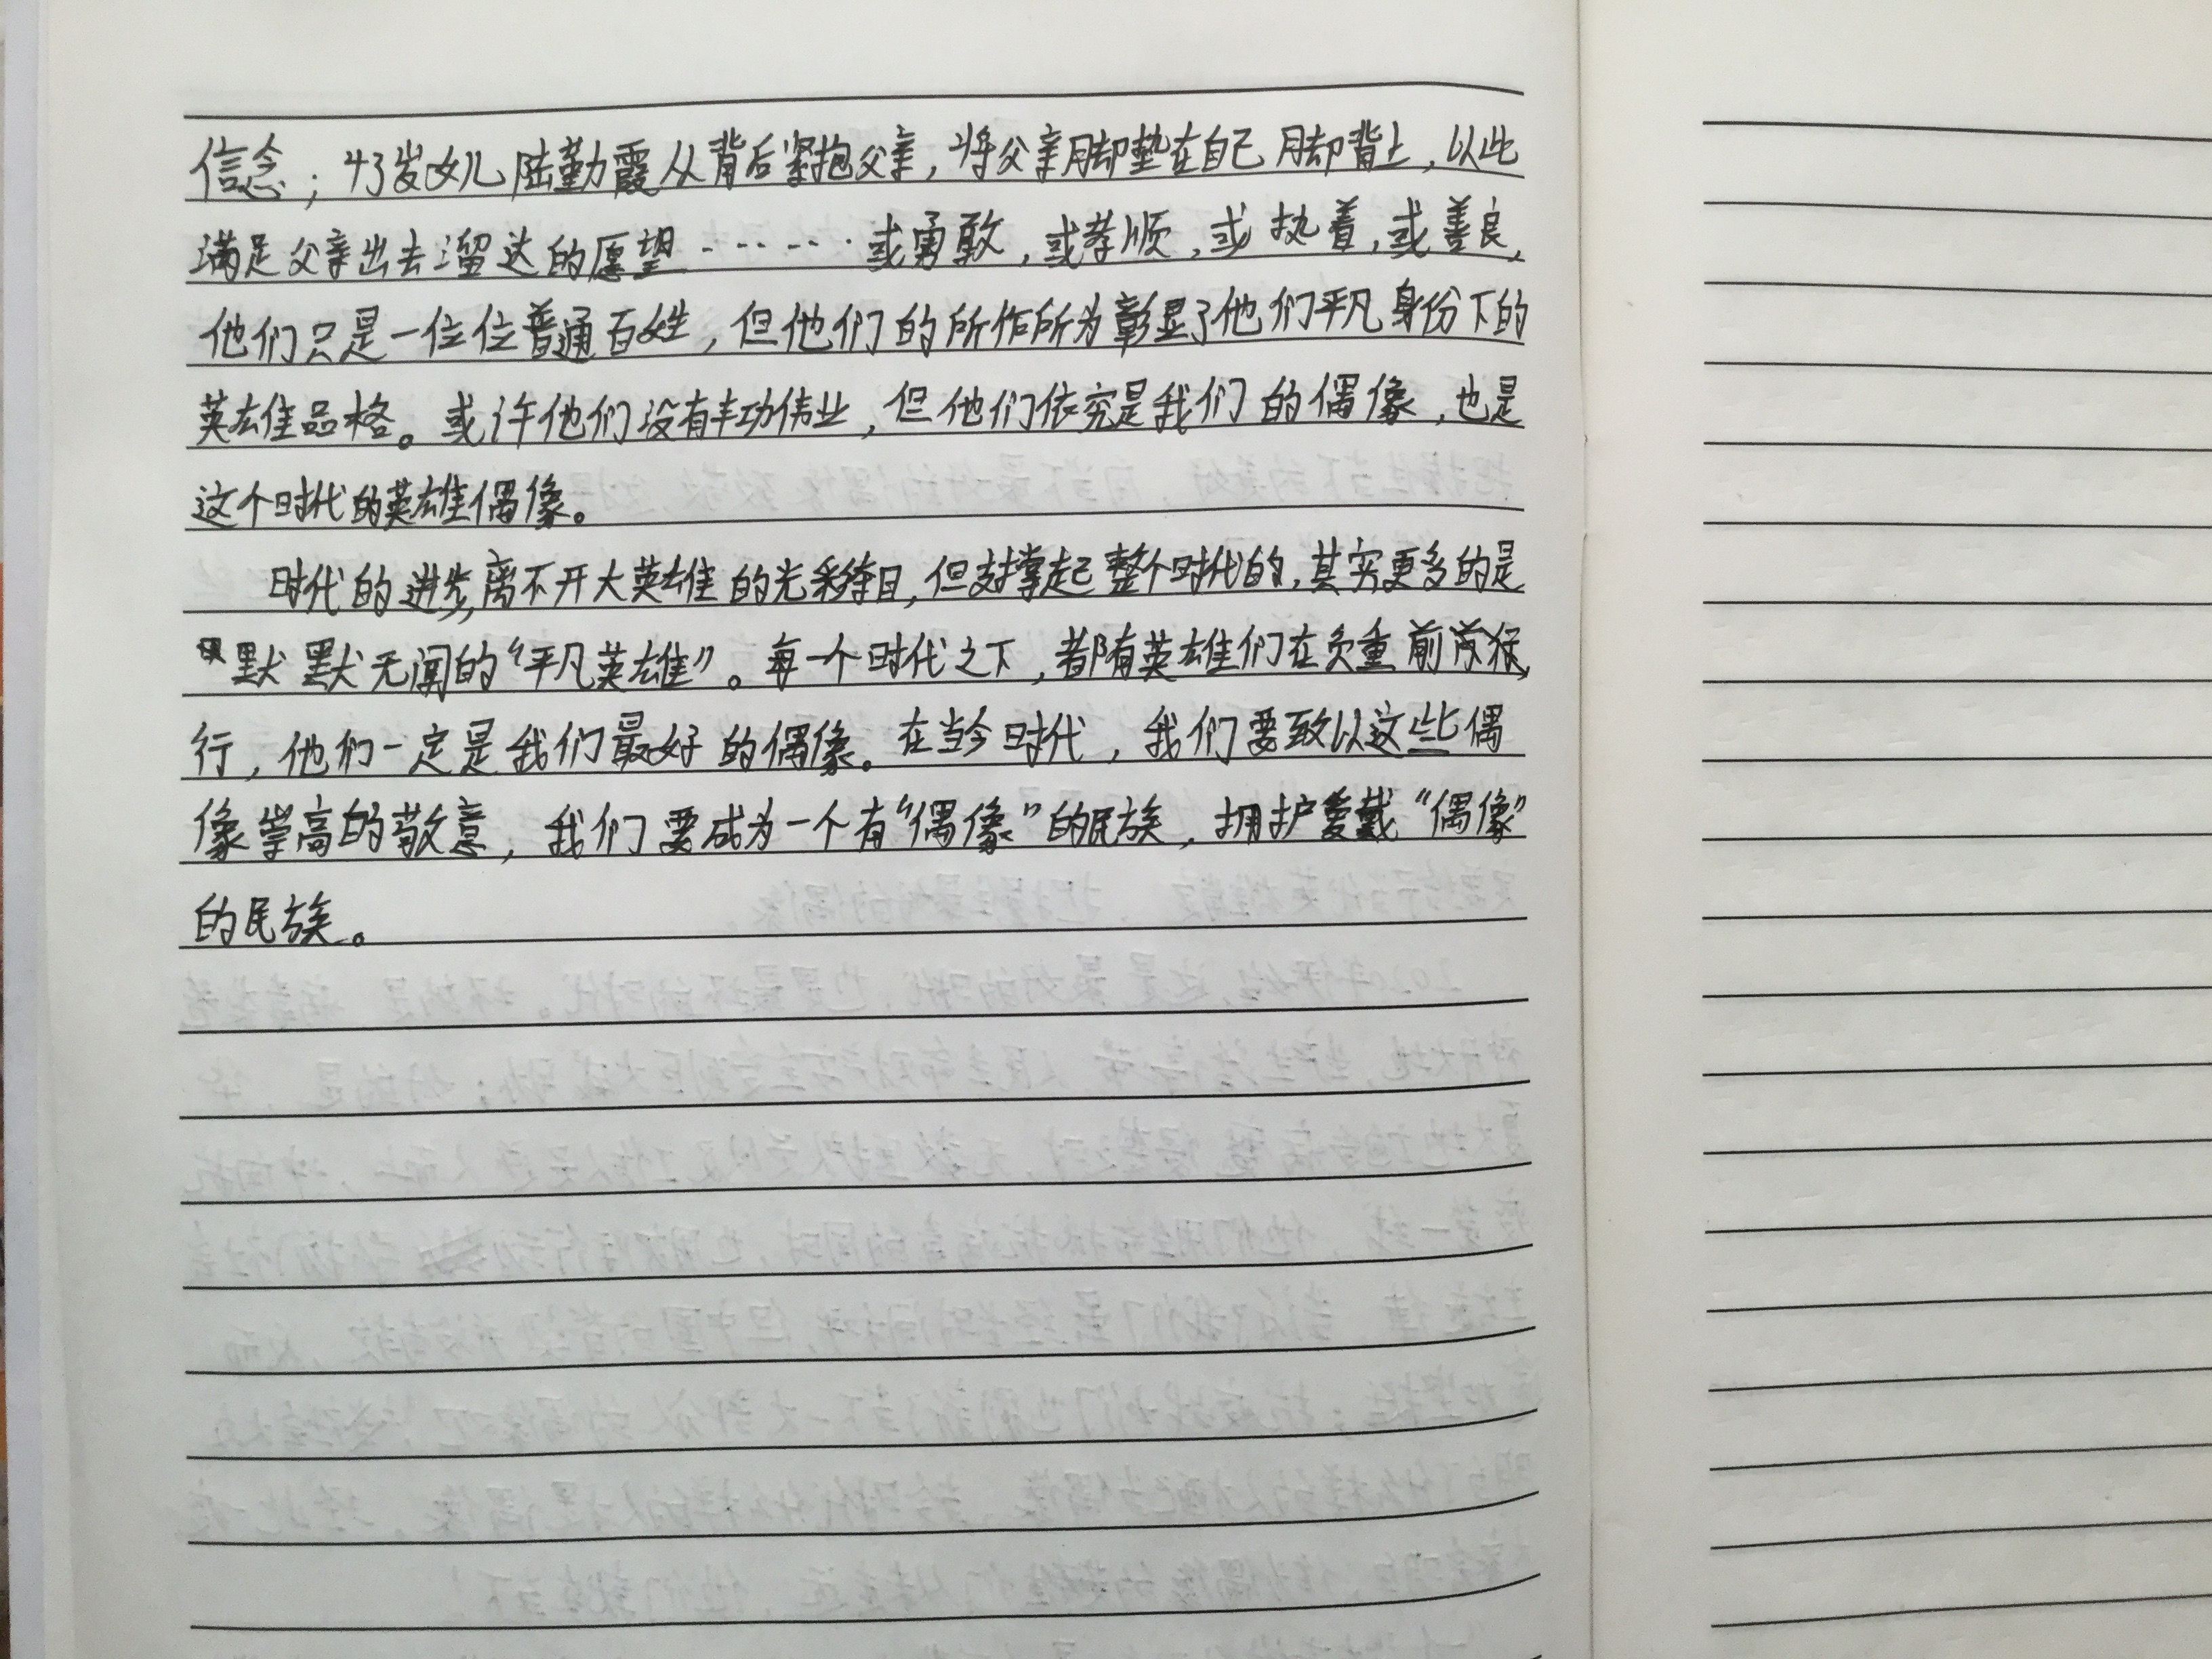 信念；43岁女儿陆勤霞从背后紧抱父亲，将父亲脚垫在自己脚背上，以此
满足父亲出去溜达的愿望……或勇敢，或孝顺，或执着，或善良，
他们只是一位位普通百姓，但他们的所作所为彰显了他们平凡身份下的
英雄品格。或许他们没有丰功伟业，但他们依究是我们的偶像，也是
这个时代的英雄偶像。
时代的进步，离不开大英雄的光彩夺目，但支撑起整个时代的，其实更多的是
默默无闻的“平凡英雄”。每一个时代之下，都有英雄们在负重前
行，他们一定是我们最好的偶像。在当今时代，我们要致以这些偶
像崇高的敬意，我们要成为一个有“偶像”的民族，拥护爱戴“偶像”
的民族。